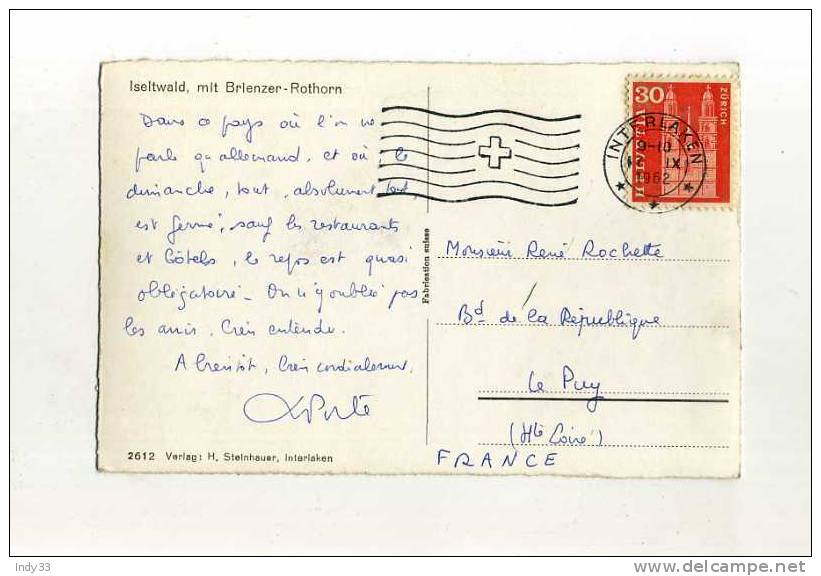 Iseltwald, mit Brienzer-Rothorn
Dans ce pays où l'on ne
parle qu'allemand, et où, le
dimanche, tout, absolument tout,
est fermé, sauf les restaurants
et hôtels, le repos est quasi
obligatoire - On n'y oublie pas
les amis, bien entendu.
A bientôt, bien cordialement,
2612 Verlag: H. Steinhauer, Interlaken
Fabrication suisse
30
HELVETIA
ZÜRICH
INTERLAKEN
9-10
IX
1962
Monsieur René Rochette
Bd de la République
Le Puy
(Hte Loire)
FRANCE
Indy33
www.delcampe.net